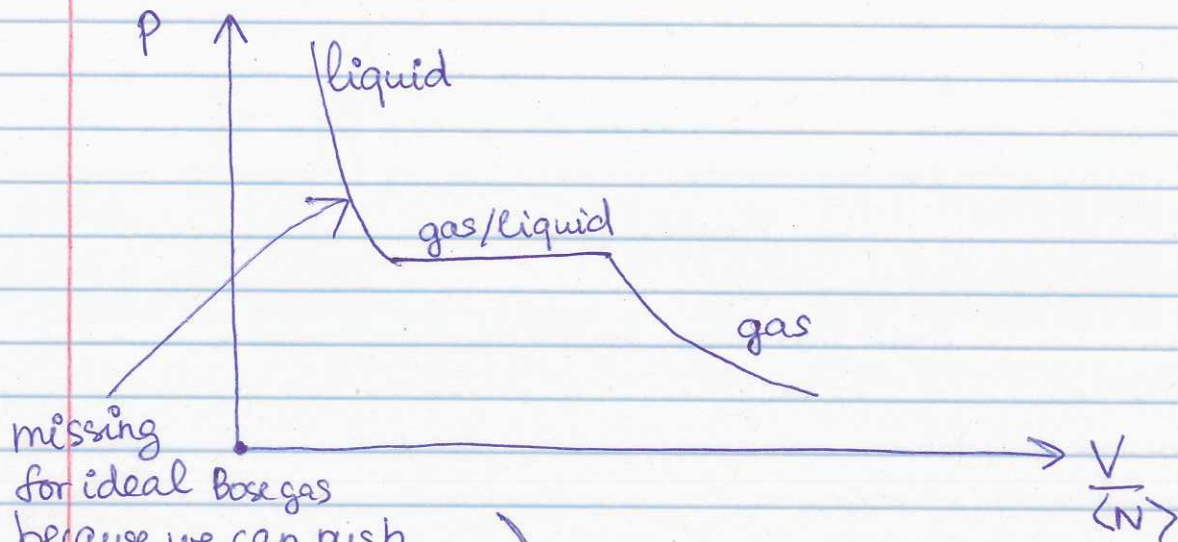 P
liquid
gas/liquid
gas
missing
for ideal Bose gas
because we can push
V
⟨N⟩